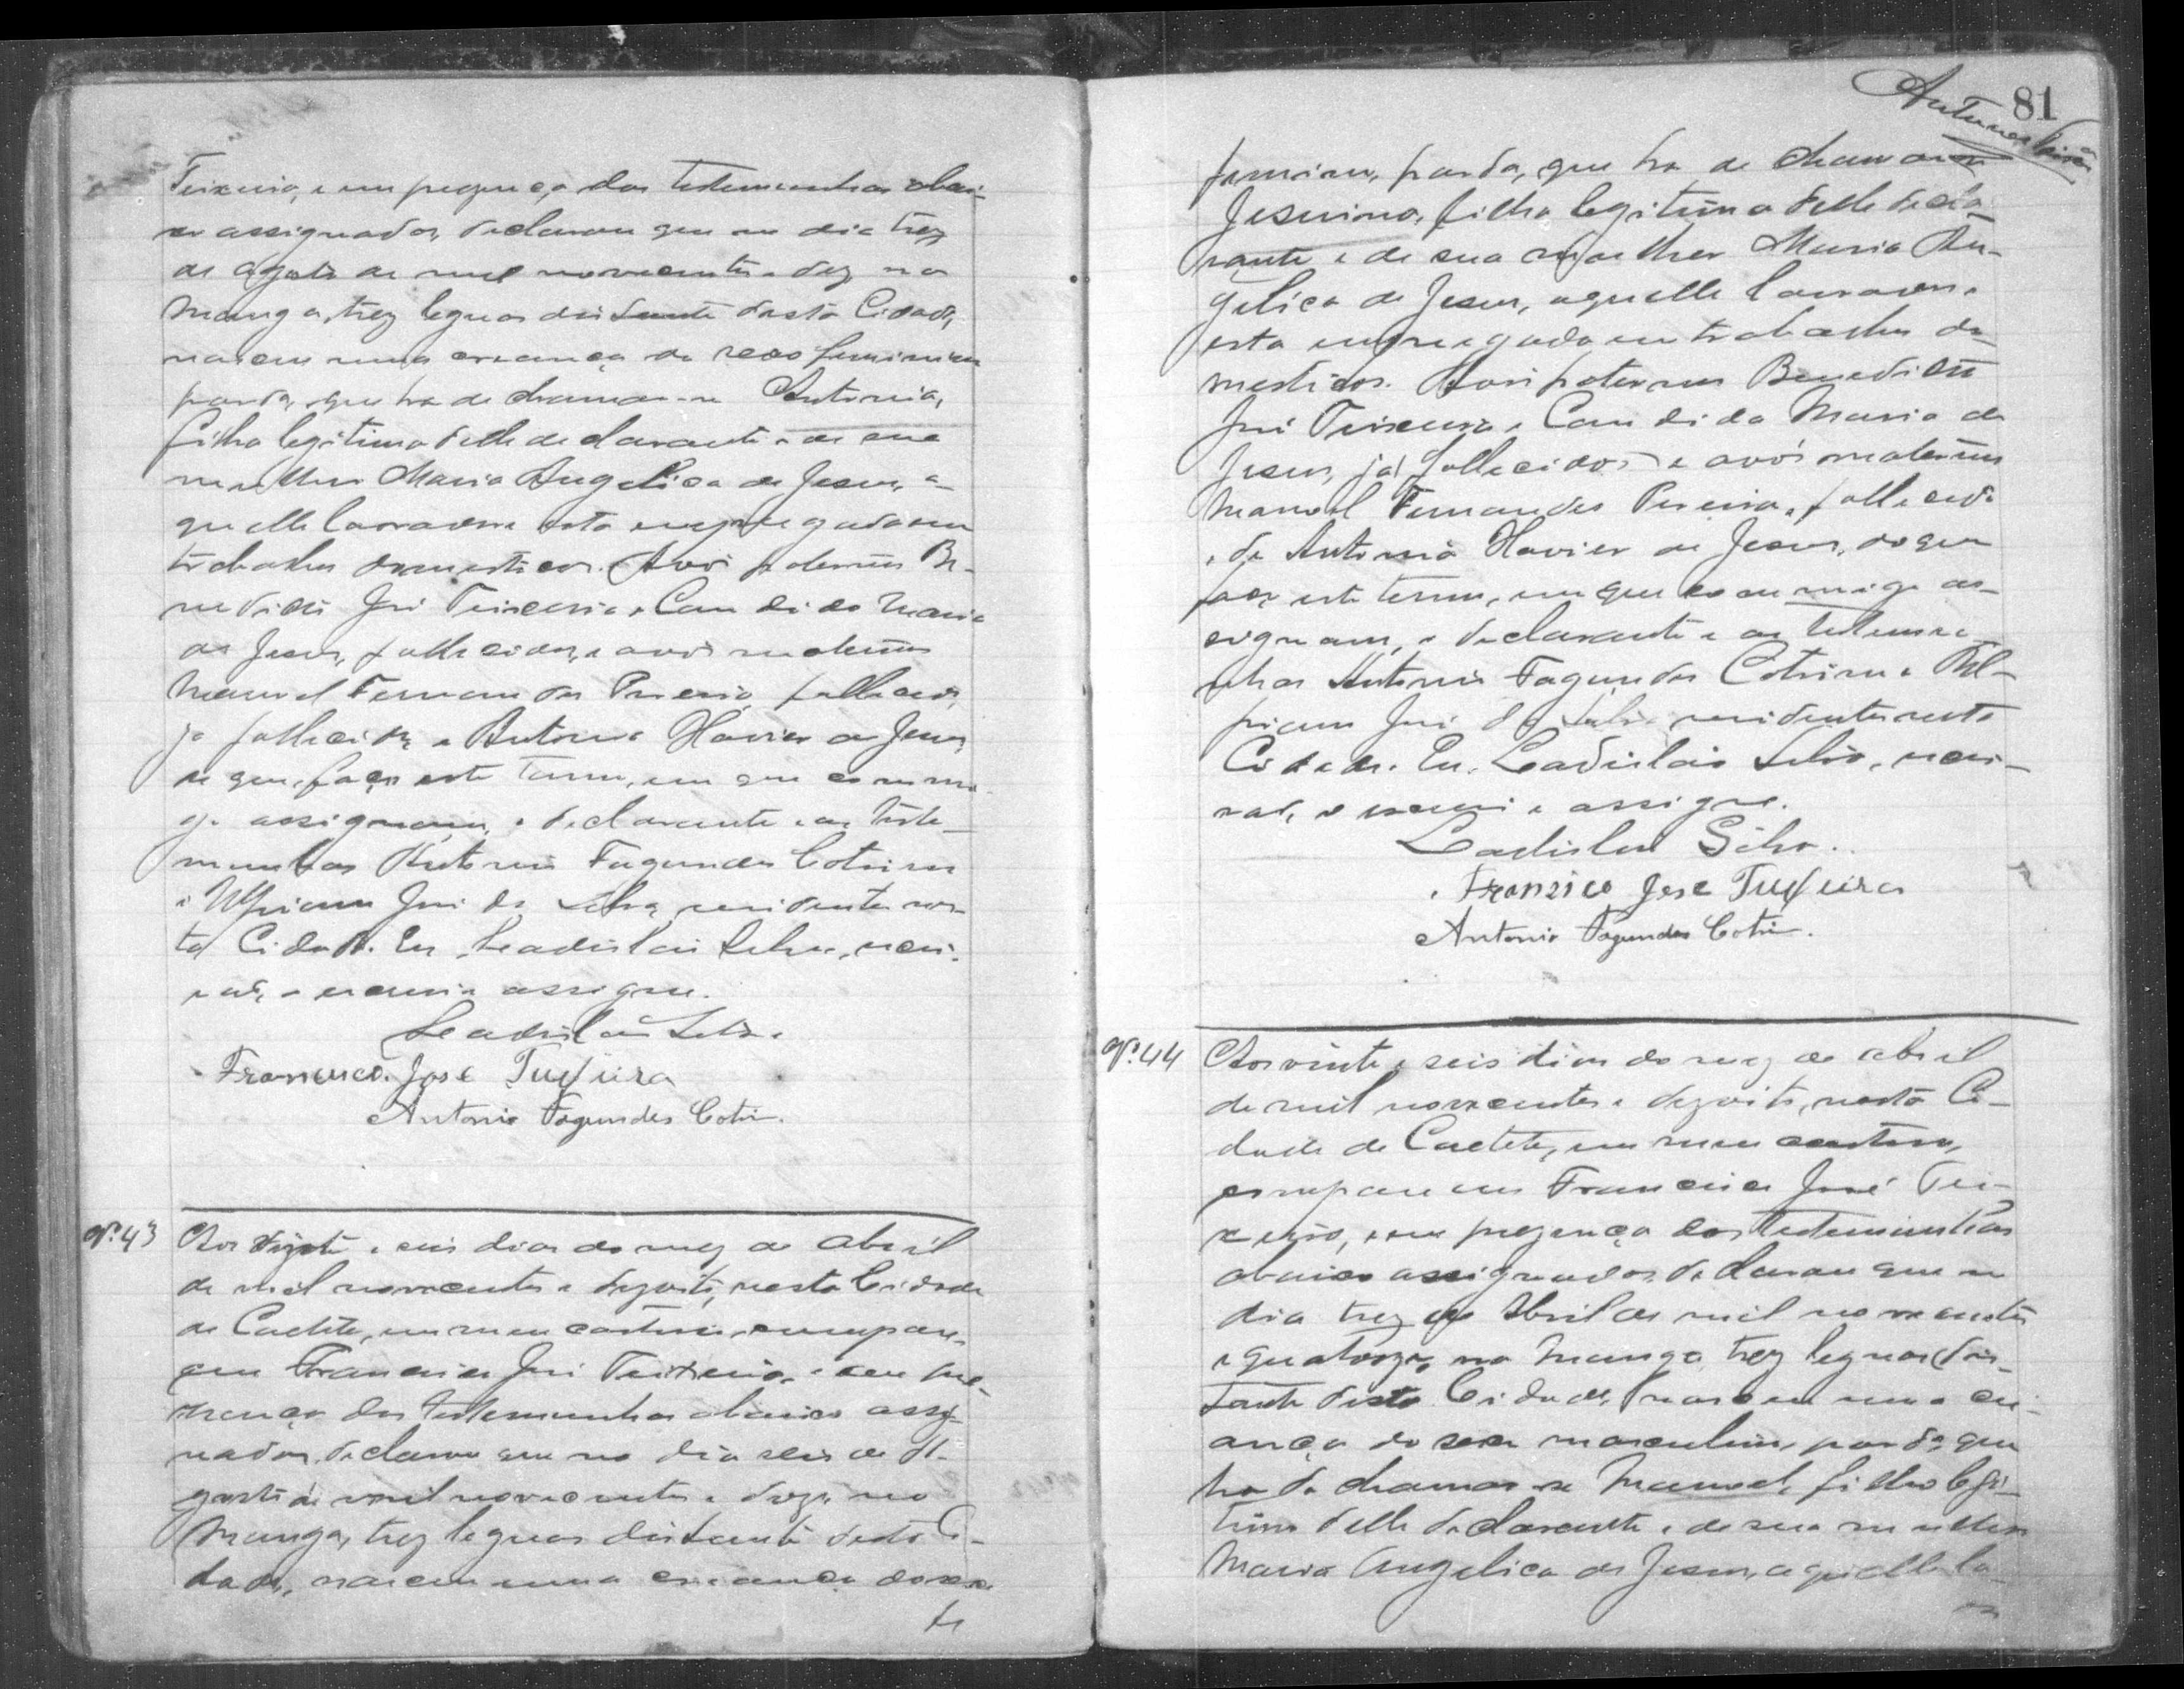 Teixeira, e em prezença das testemunhas abai-
xo assignadas, declarou que no dia trez
de agosto de mil novecentos e dez na
Manga, trez leguas distante desta Cidade,
nasceu uma creança do sexo feminino
parda, que ha de chamar-se Antonia,
filha legitima delle declarante e de sua
mulher Maria Angelica de Jesus, a-
quelle lavrador e esta empregada em
trabalhos domesticos. Avós paternos Be-
nedicto José Teixeira e Candida Maria
de Jesus, fallecidos, e avós maternos
Manoel Fernandes Pereira, fallecido,
já fallecido, e Antonia Xavier de Jesus,
do que faço este termo, em que commi-
go assignam, o declarante e as teste-
munhas Antonio Fagundes Cotrim
e Ulpiano José da Silva, residentes nes-
ta Cidade. Eu, Ladislau Silva, escri-
vão, o escrevi e assigno.
Ladislau Silva.
Francisco José Teixeira
Antonio Fagundes Cotrim.
Nº 43 Aos vinte e seis dias do mez de abril
de mil novecentos e dezoito, nesta Cidade
de Caetité, em meu cartorio, compare-
ceu Francisco José Teixeira, e em pre-
zença das testemunhas abaixo assig-
nadas, declarou que no dia seis de A-
gosto de mil novecentos e doze, na
Manga, trez leguas distante desta Ci-
dade, nasceu uma creança do sexo
fe
81
feminino, parda, que ha de chamar-se
Jesuina, filha legitima delle decla-
rante e de sua mulher Maria An-
gelica de Jesus, aquelle lavrador e
esta empregada em trabalhos do-
mesticos. Avós paternos Benedicto
José Teixeira e Candida Maria de
Jesus, já fallecidos e avós maternos
Manoel Fernandes Pereira, fallecido
e de Antonia Xavier de Jesus, do que
faço este termo, em que commigo as-
signam, o declarante e as testemu-
nhas Antonio Fagundes Cotrim e Ul-
piano José da Silva residentes nesta
Cidade. Eu, Ladislau Silva, escri-
vão, o escrevi e assigno.
Ladislau Silva.
Francisco José Teixeira
Antonio Fagundes Cotrim.
Nº 44 Aos vinte e seis dias do mez de abril
de mil novecentos e dezoito, nesta Ci-
dade de Caetité, em meu cartorio,
compareceu Francisco José Tei-
xeira, e em prezença das testemunhas
abaixo assignadas, declarou que no
dia trez de Abril de mil novecentos
e quatorze, na Manga trez leguas dis-
tante desta Cidade, nasceu uma cri-
ança do sexo masculino, parda, que
ha de chamar-se Manoel, filho legi-
timo delle declarante e de sua mulher
Maria Angelica de Jesus, aquelle la-